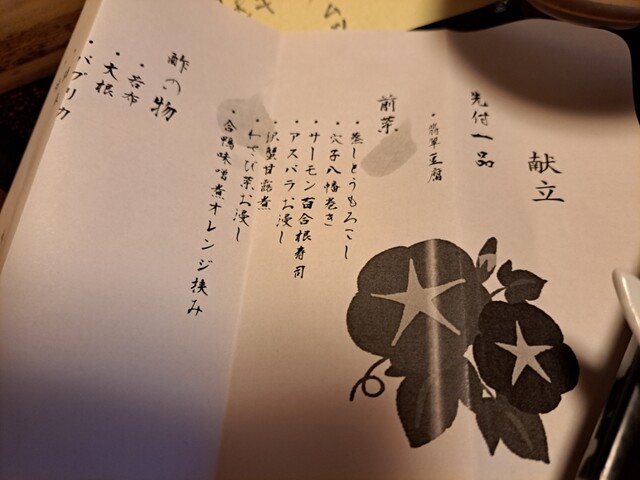 献立
先付一品
・翡翠豆腐
前菜
・蒸しとうもろこし
・穴子八幡巻き
・サーモン百合根寿司
・アスパラお浸し
・沢蟹甘露煮
・わさび菜お浸し
・合鴨味噌煮オレンジ挟み
酢の物
・若布
・大根
・パプリカ